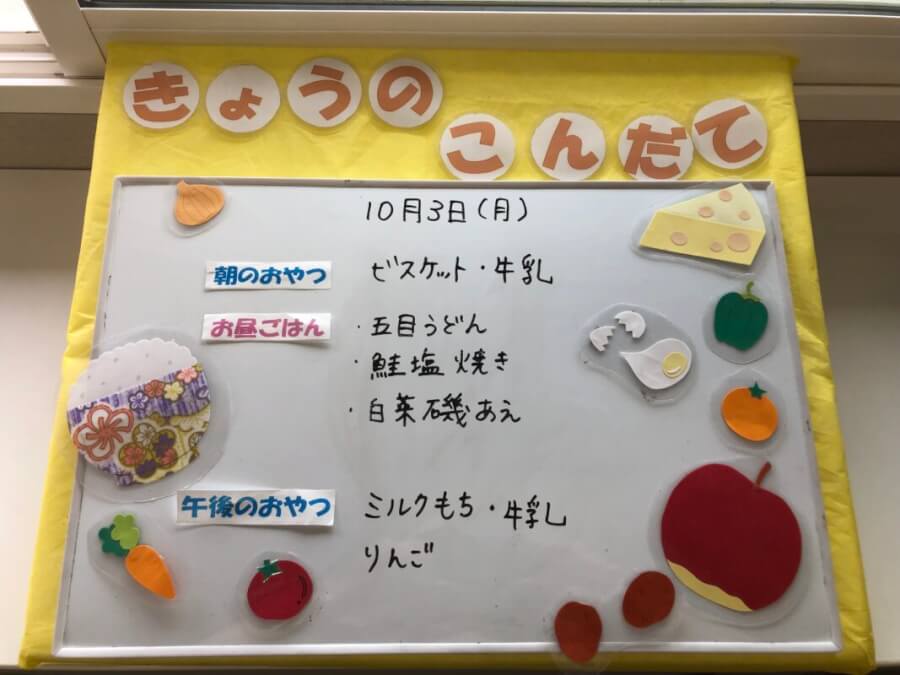 きょうの
こんだて
10月3日(月)
朝のおやつ ビスケット・牛乳
お昼ごはん ・五目うどん
・鮭塩焼き
・白菜磯あえ
午後のおやつ ミルクもち・牛乳
りんご